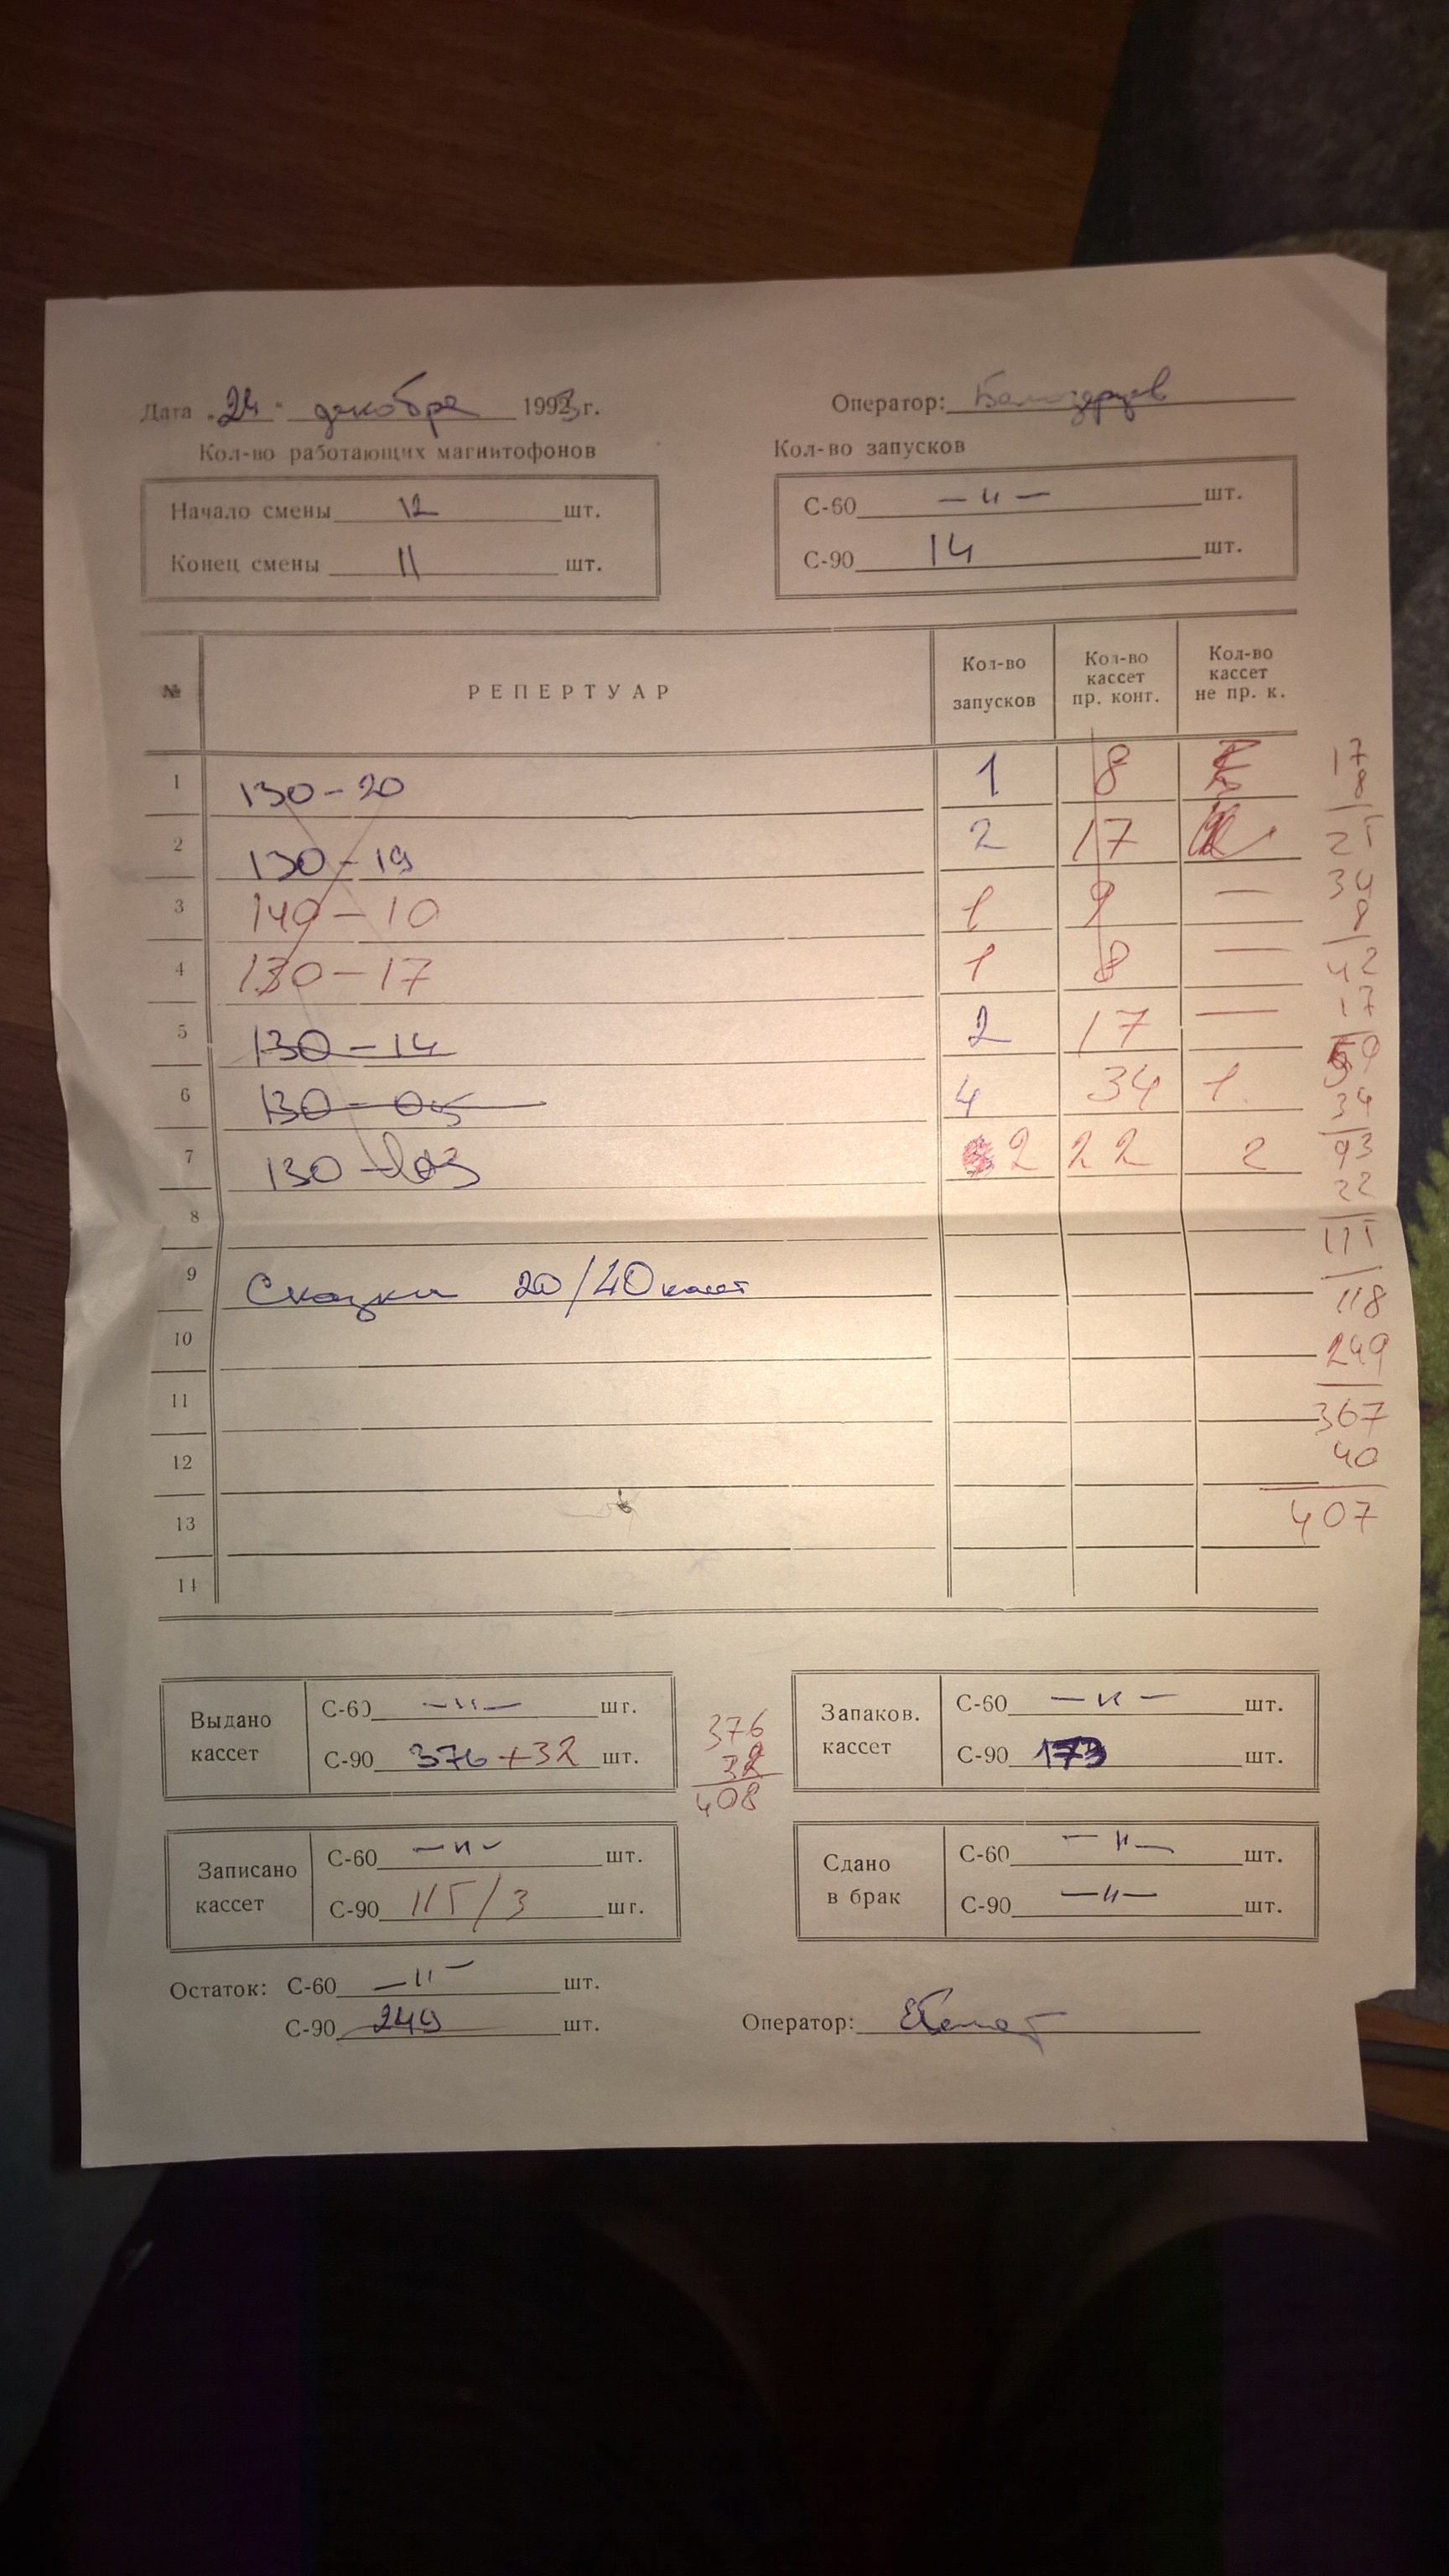 Дата "24" декабря 1993 г. Оператор:
Кол-во работающих магнитофонов Кол-во запусков
Начало смены 12 шт. С-60 —"— шт.
Конец смены 11 шт. С-90 14 шт.
№ РЕПЕРТУАР Кол-во запусков Кол-во кассет пр. конт. Кол-во кассет не пр. к.
1 130-20 1 8
2 130-19 2 17
3 140-10 1 9 —
4 130-17 1 8 —
5 130-14 2 17 —
6 130-05 4 34 1
7 130- 2 22 2
8
9 Сказки 20/40 касет
10
11
12
13
14
17
8
25
34
8
42
17
59
34
93
22
115
118
249
367
40
407
Выдано кассет С-60 —"— шт.
С-90 376+32 шт.
376
32
408
Запаков. кассет С-60 —"— шт.
С-90 173 шт.
Записано кассет С-60 —"— шт.
С-90 115/3 шт.
Сдано в брак С-60 —"— шт.
С-90 —"— шт.
Остаток: С-60 —"— шт.
С-90 249 шт. Оператор: